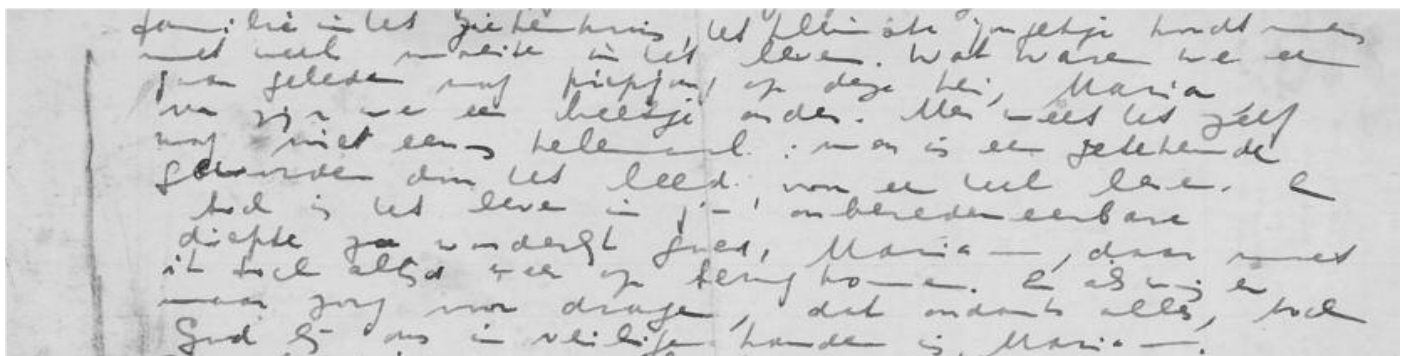 familie in het ziekenhuis, het kleinste jongetje houdt men
met veel moeite in het leven. Wat waren we een
jaar geleden nog piepjong op deze hei, Maria
nu zijn we een beetje ouder. Men weet het zelf
nog niet eens helemaal: men is een getekende
geworden door het leed voor een heel leven. En
toch is het leven in z'n onberedeneerbare
diepte zo wonderlijk goed, Maria —, daar moet
ik toch altijd weer op terugkomen. En als wij er
maar zorg voor dragen, dat ondanks alles, toch
God bij ons in veilige handen is, Maria —.